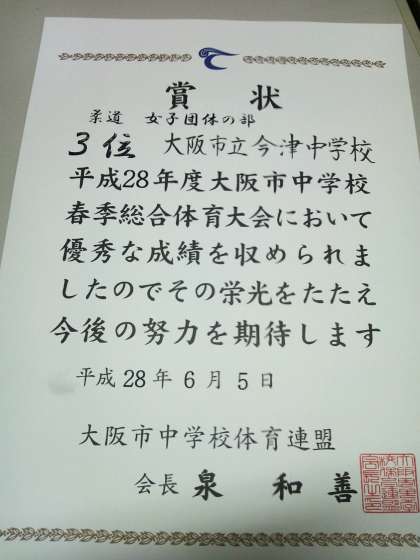 賞状
柔道 女子団体の部
3位 大阪市立今津中学校
平成28年度大阪市中学校
春季総合体育大会において
優秀な成績を収められま
したのでその栄光をたたえ
今後の努力を期待します
平成 28 年 6 月 5 日
大阪市中学校体育連盟
会長 泉 和善